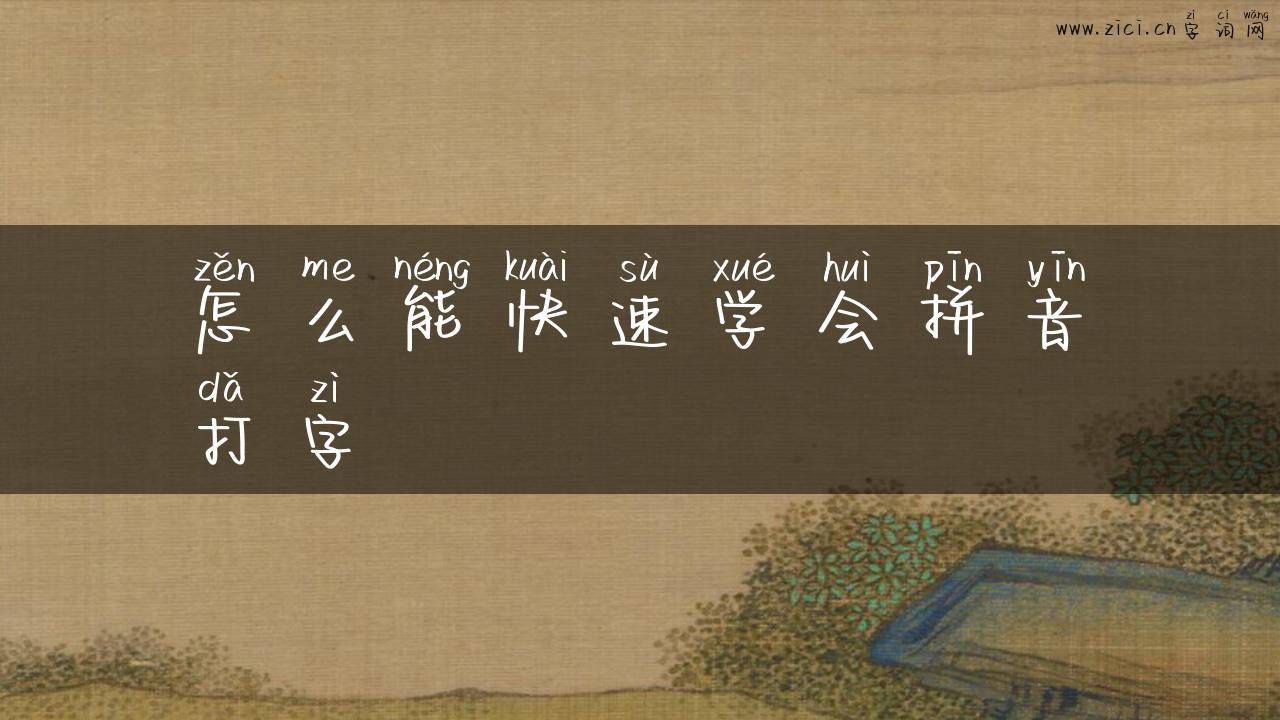 zì cí wǎng
www.zici.cn 字词网
zěn me néng kuài sù xué huì pīn yīn
怎么能快速学会拼音
dǎ zì
打字